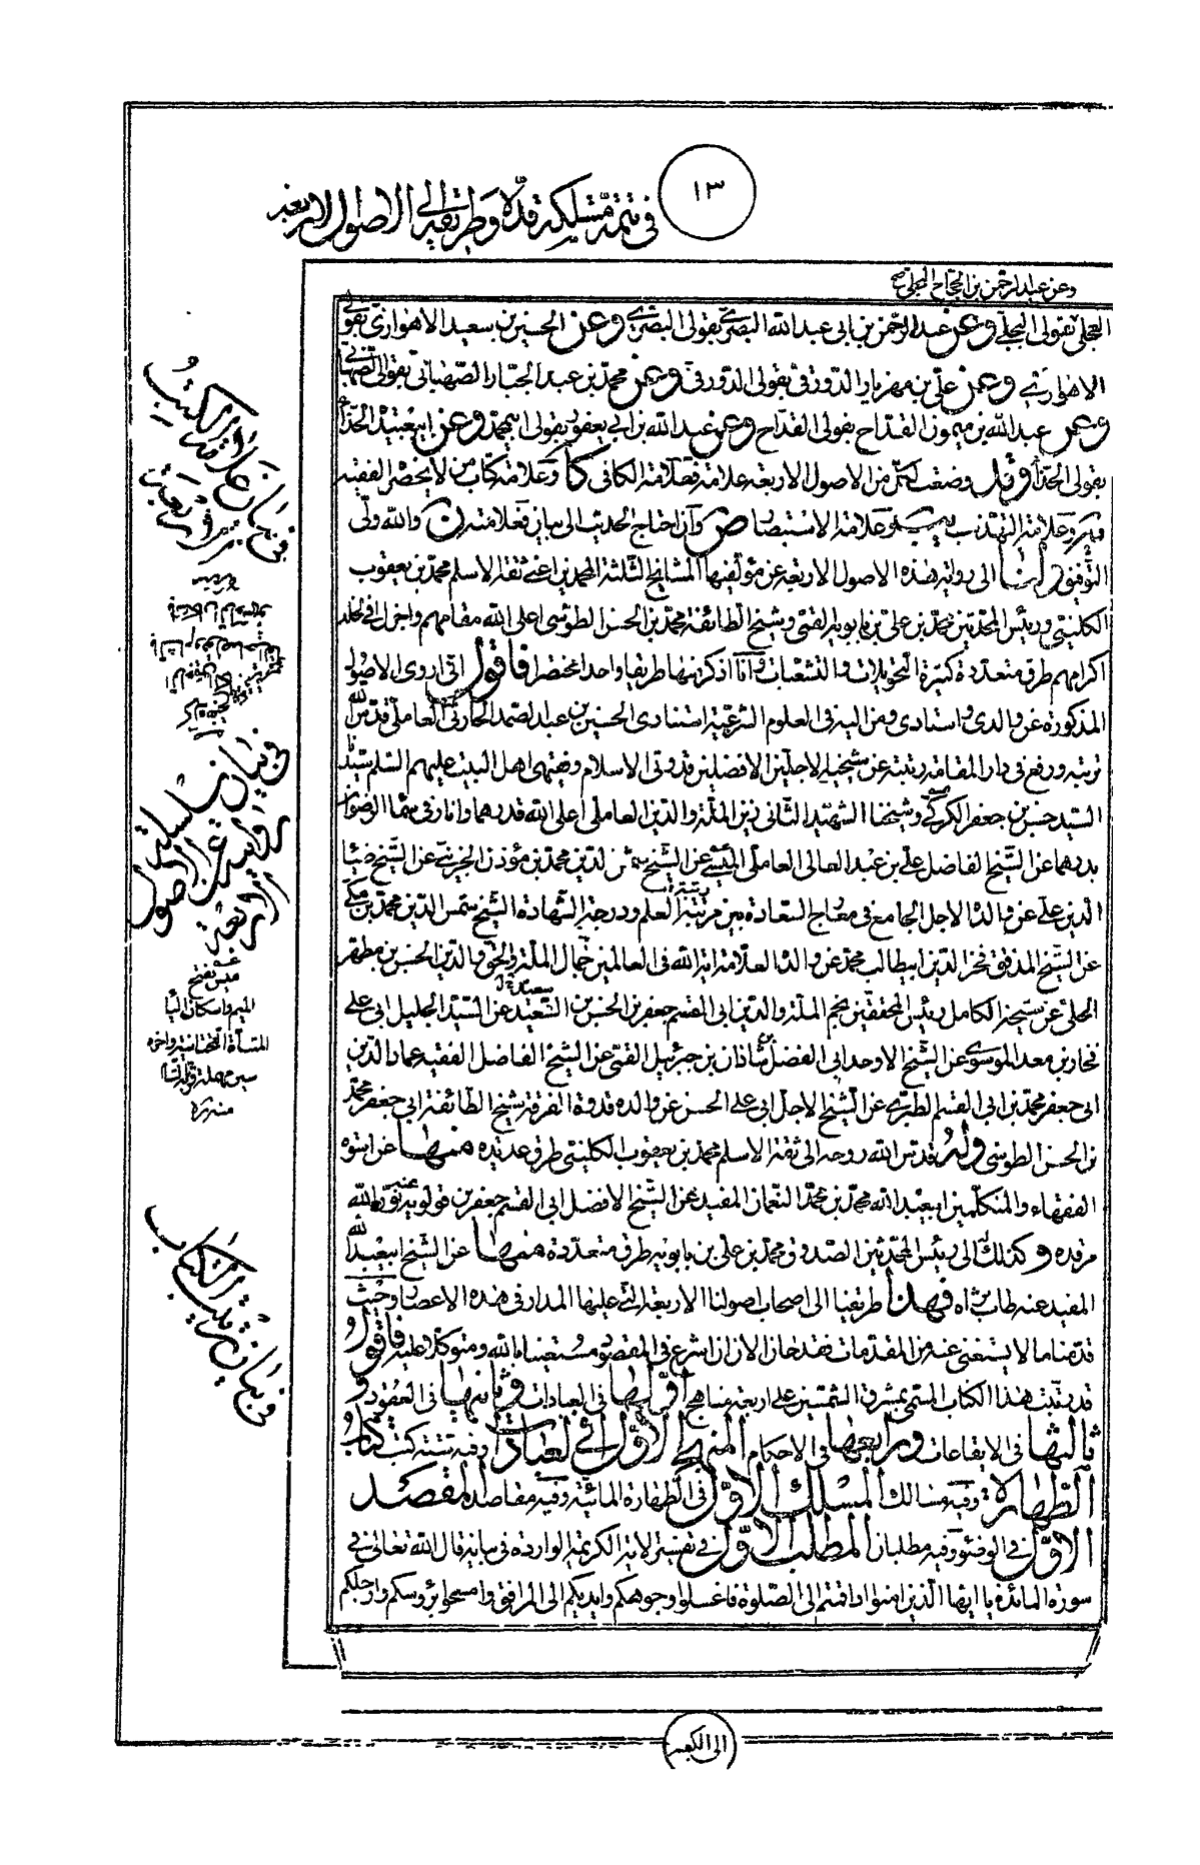 ١٣
في تتمة مسلكه قدّه وطريقه الى الاصول الاربعة
وعن عبد الرحمن بن الحجاج البجلي
العجلي بقولى البجلي وعن عبد الرحمن بن ابي عبد الله البصري بقولى البصري وعن الحسين بن سعيد الاهوازي بقولى
الاهوازي وعن علي بن مهزيار الدورقي بقولى الدورقي وعن محمد بن عبد الجبار الصهباني بقولى الصهباني
وعن عبد الله بن ميمون القداح بقولى القداح وعن عبد الله بن ابي يعفور بقولى ابن محمد وعن ابي عبيدة الحذاء
بقولى الحذاء وقد وضعت لكل من الاصول الاربعة علامة فعلامة الكافي كا وعلامة كتاب من لا يحضره الفقيه
يه وعلامة التهذيب يب وعلامة الاستبصار ص وان احتاج الحديث الى بيان فعلامته ن والله ولي
التوفيق ولنا الى رواية هذه الاصول الاربعة عن مؤلفيها المشايخ الثلثة المحمدين اعني ثقة الاسلم محمد بن يعقوب
الكليني ورئيس المحدثين محمد بن علي بن بابويه القمي وشيخ الطائفة محمد بن الحسن الطوسي اعلى الله مقامهم واجزل في الخلد
اكرامهم طرق متعددة كثيرة التحويلات والتشعبات وانا اذكر منها طريقا واحدا مختصرا فاقول اني اروي الاصول
المذكورة عن والدي واستادي ومن اليه في العلوم الشرعية استنادي الحسين بن عبد الصمد الحارثي العاملي قدس الله
تربته ورفع في دار المقامة رتبته عن شيخيه الاجلين الافضلين قدوتي الاسلام وفقيهي اهل البيت عليهم السلم سيدنا
السيد حسن بن جعفر الكركي وشيخنا الشهيد الثاني زين الملة والدين العاملي اعلى الله قدرهما وانار في سماء الرضوان
بدرهما عن الشيخ الفاضل علي بن عبد العالي العاملي الميسي عن الشيخ شمس الدين محمد بن مؤذن الجزيني عن الشيخ ضياء
الدين علي عن والده الاجل الجامع في معارج السعادة بين مرتبة العلم ودرجة الشهادة الشيخ شمس الدين محمد بن مكي
عن الشيخ المدقق فخر الدين ابي طالب محمد عن والده العلامة اية الله في العالمين جمال الملة والحق والدين الحسن بن مطهر
الحلي عن شيخه الكامل رئيس المحققين نجم الملة والدين ابي القسم جعفر بن الحسن بن السعيد عن السيد الجليل ابي علي
فخار بن معد الموسوي عن الشيخ الاوحد ابي الفضل شاذان بن جبرئيل القمي عن الشيخ الفاضل الفقيه عماد الدين
ابي جعفر محمد بن ابي القسم الطبري عن الشيخ الاجل ابي علي الحسن عن والده قدوة الفرقة شيخ الطائفة ابي جعفر محمد
بن الحسن الطوسي وله قدس الله روحه الى ثقة الاسلم محمد بن يعقوب الكليني طرق عديدة منها عن اسوة
الفقهاء والمتكلمين ابي عبد الله محمد بن محمد النعمان المفيد عن الشيخ الافضل ابي القسم جعفر بن قولويه عنه نور الله
مرقده وكذلك الى رئيس المحدثين الصدوق محمد بن علي بن بابويه طرق متعددة منها عن الشيخ ابي عبد الله
المفيد عنه طاب ثراه فهذا طريقنا الى اصحاب اصولنا الاربعة التي عليها المدار في هذه الاعصار وحيث
قدمنا ما لا يستغنى عنه من المقدمات فقد حان الان ان اشرع في المقصود مستعينا بالله ومتوكلا عليه فاقول
قد رتبت هذا الكتاب المسمى بمشرق الشمسين على اربعة مناهج اولها في العبادات وثانيها في العقود و
ثالثها في الايقاعات ورابعها في الاحكام المنهج الاول في العبادات وفيه ستة كتب كتاب
الطهارة وفيه مسالك المسلك الاول في الطهارة المائية وفيه مقاصد المقصد
الاول في الوضوء وفيه مطلبان المطلب الاول في تفسير الاية الكريمة الواردة في بيانه قال الله تعالى في
سورة المائدة يا ايها الذين امنوا اذا قمتم الى الصلوة فاغسلوا وجوهكم وايديكم الى المرافق وامسحوا برؤسكم وارجلكم
في بيان علائم الكتب
الاربعة
في بيان سلسلة
رواية عن الاصول
الاربعة
ميس بفتح
الميم واسكان الياء
المثناة التحتانية واخره
سين مهملة
منه ره
في بيان ترتيب الكتاب
الى الكعبين